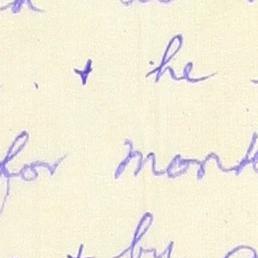 . + he
for mont
+ by